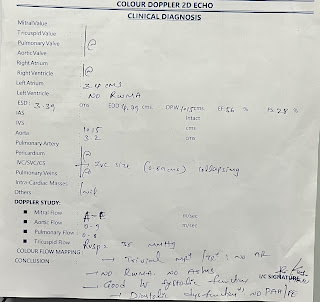 COLOUR DOPPLER 2D ECHO
CLINICAL DIAGNOSIS
Mitral Value
Tricuspid Value
Pulmonary Valve
Aortic Valve
Right Atrium
Right Ventricle
Left Atrium 3.4 cms
Left Ventricle NO RWMA
ESD: 3.39 cms EDD 4.79 cms DPW 1.015 cms EF: 56 % FS: 28 %
IAS Intact
IVS 1.015 cms
Aorta 3.2 cms
Pulmonary Artery
Pericardium
IVC/SVC/CS IVC size collapsing
Pulmonary Veins
Intra Cardiac Masses Nil
Others
DOPPLER STUDY:
Mitral Flow m/sec
Aortic Flow 0.9 m/sec
Pulmonary Flow 0.8
Tricuspid Flow RVSP = 35 mmHg
COLOUR FLOW MAPPING: Trivial MR TR NO AR
CONCLUSION NO RWMA. NO
I/C SIGNATURE
Good LV systolic function
Diastolic dysfunction NO PAH/PE